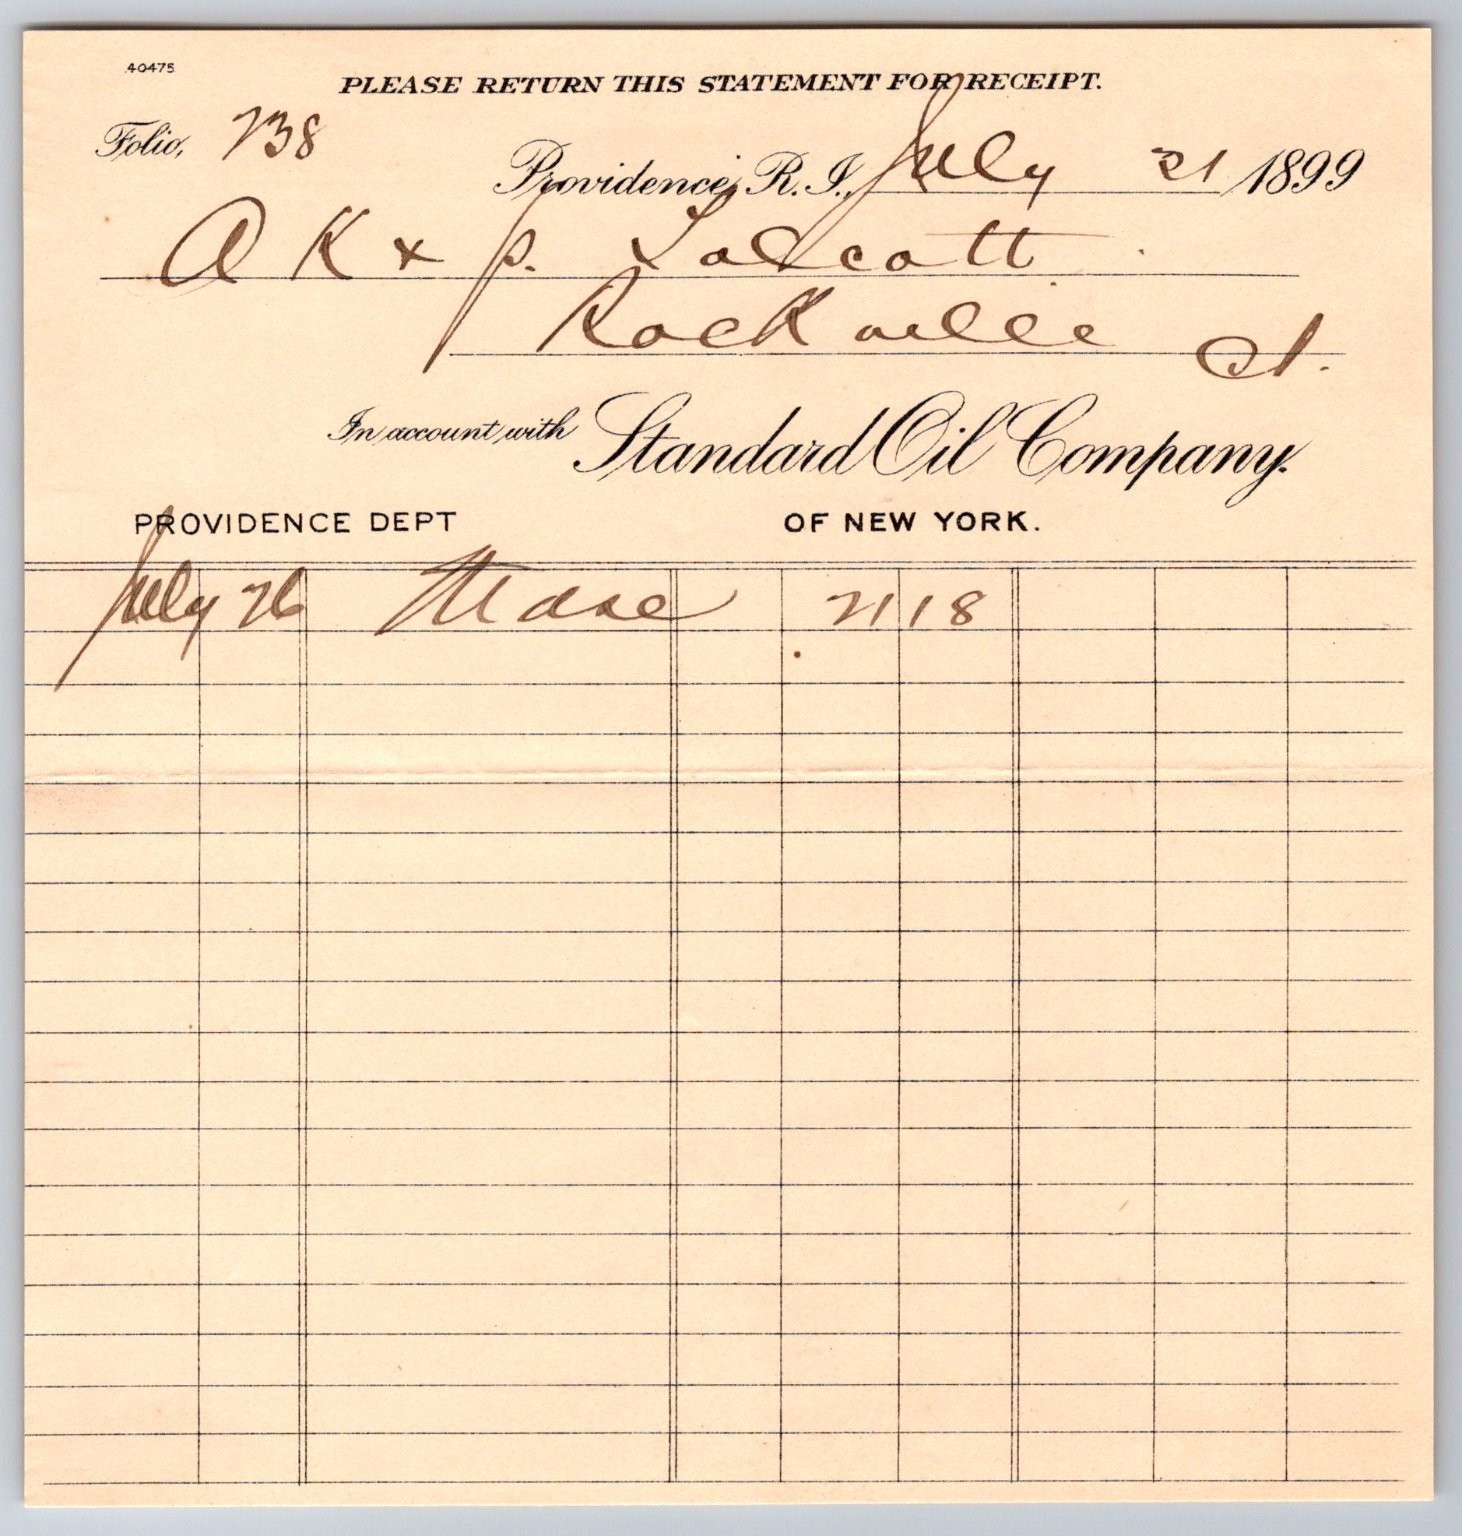 40475
PLEASE RETURN THIS STATEMENT FOR RECEIPT.
Folio, 738
Providence, R. I., July 31 1899
A K & P. Talcott
Rockville Ct.
In account with Standard Oil Company.
PROVIDENCE DEPT OF NEW YORK.
July 26 Mdse 21 18